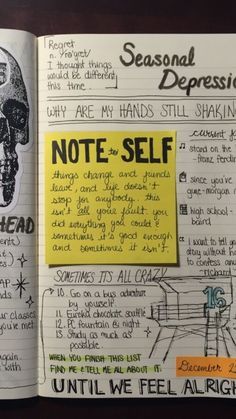 Regret
n. /rəˈɡrɛt/
I thought things
would be different
this time.
Seasonal
Depression
WHY ARE MY HANDS STILL SHAKING
NOTE to SELF
things change and friends
leave, and life doesn't
stop for anybody. this
isn't all your fault. you
did everything you could &
sometimes it's good enough
and sometimes it isn't.
current f
stand on the
- franz ferdin
since you've
gone - morgan
high school -
baird
I want to tell
story without
to confess any
- richard
HEAD
SOMETIMES IT'S ALL CRAZY
10. Go on a bus adventure
by yourself
11. Eureka chocolate souffle
12. PL fountain @ night
13. Study as much as
possible.
WHEN YOU FINISH THIS LIST
FIND ME & TELL ME ALL ABOUT IT.
16
December 2
UNTIL WE FEEL ALRIGH